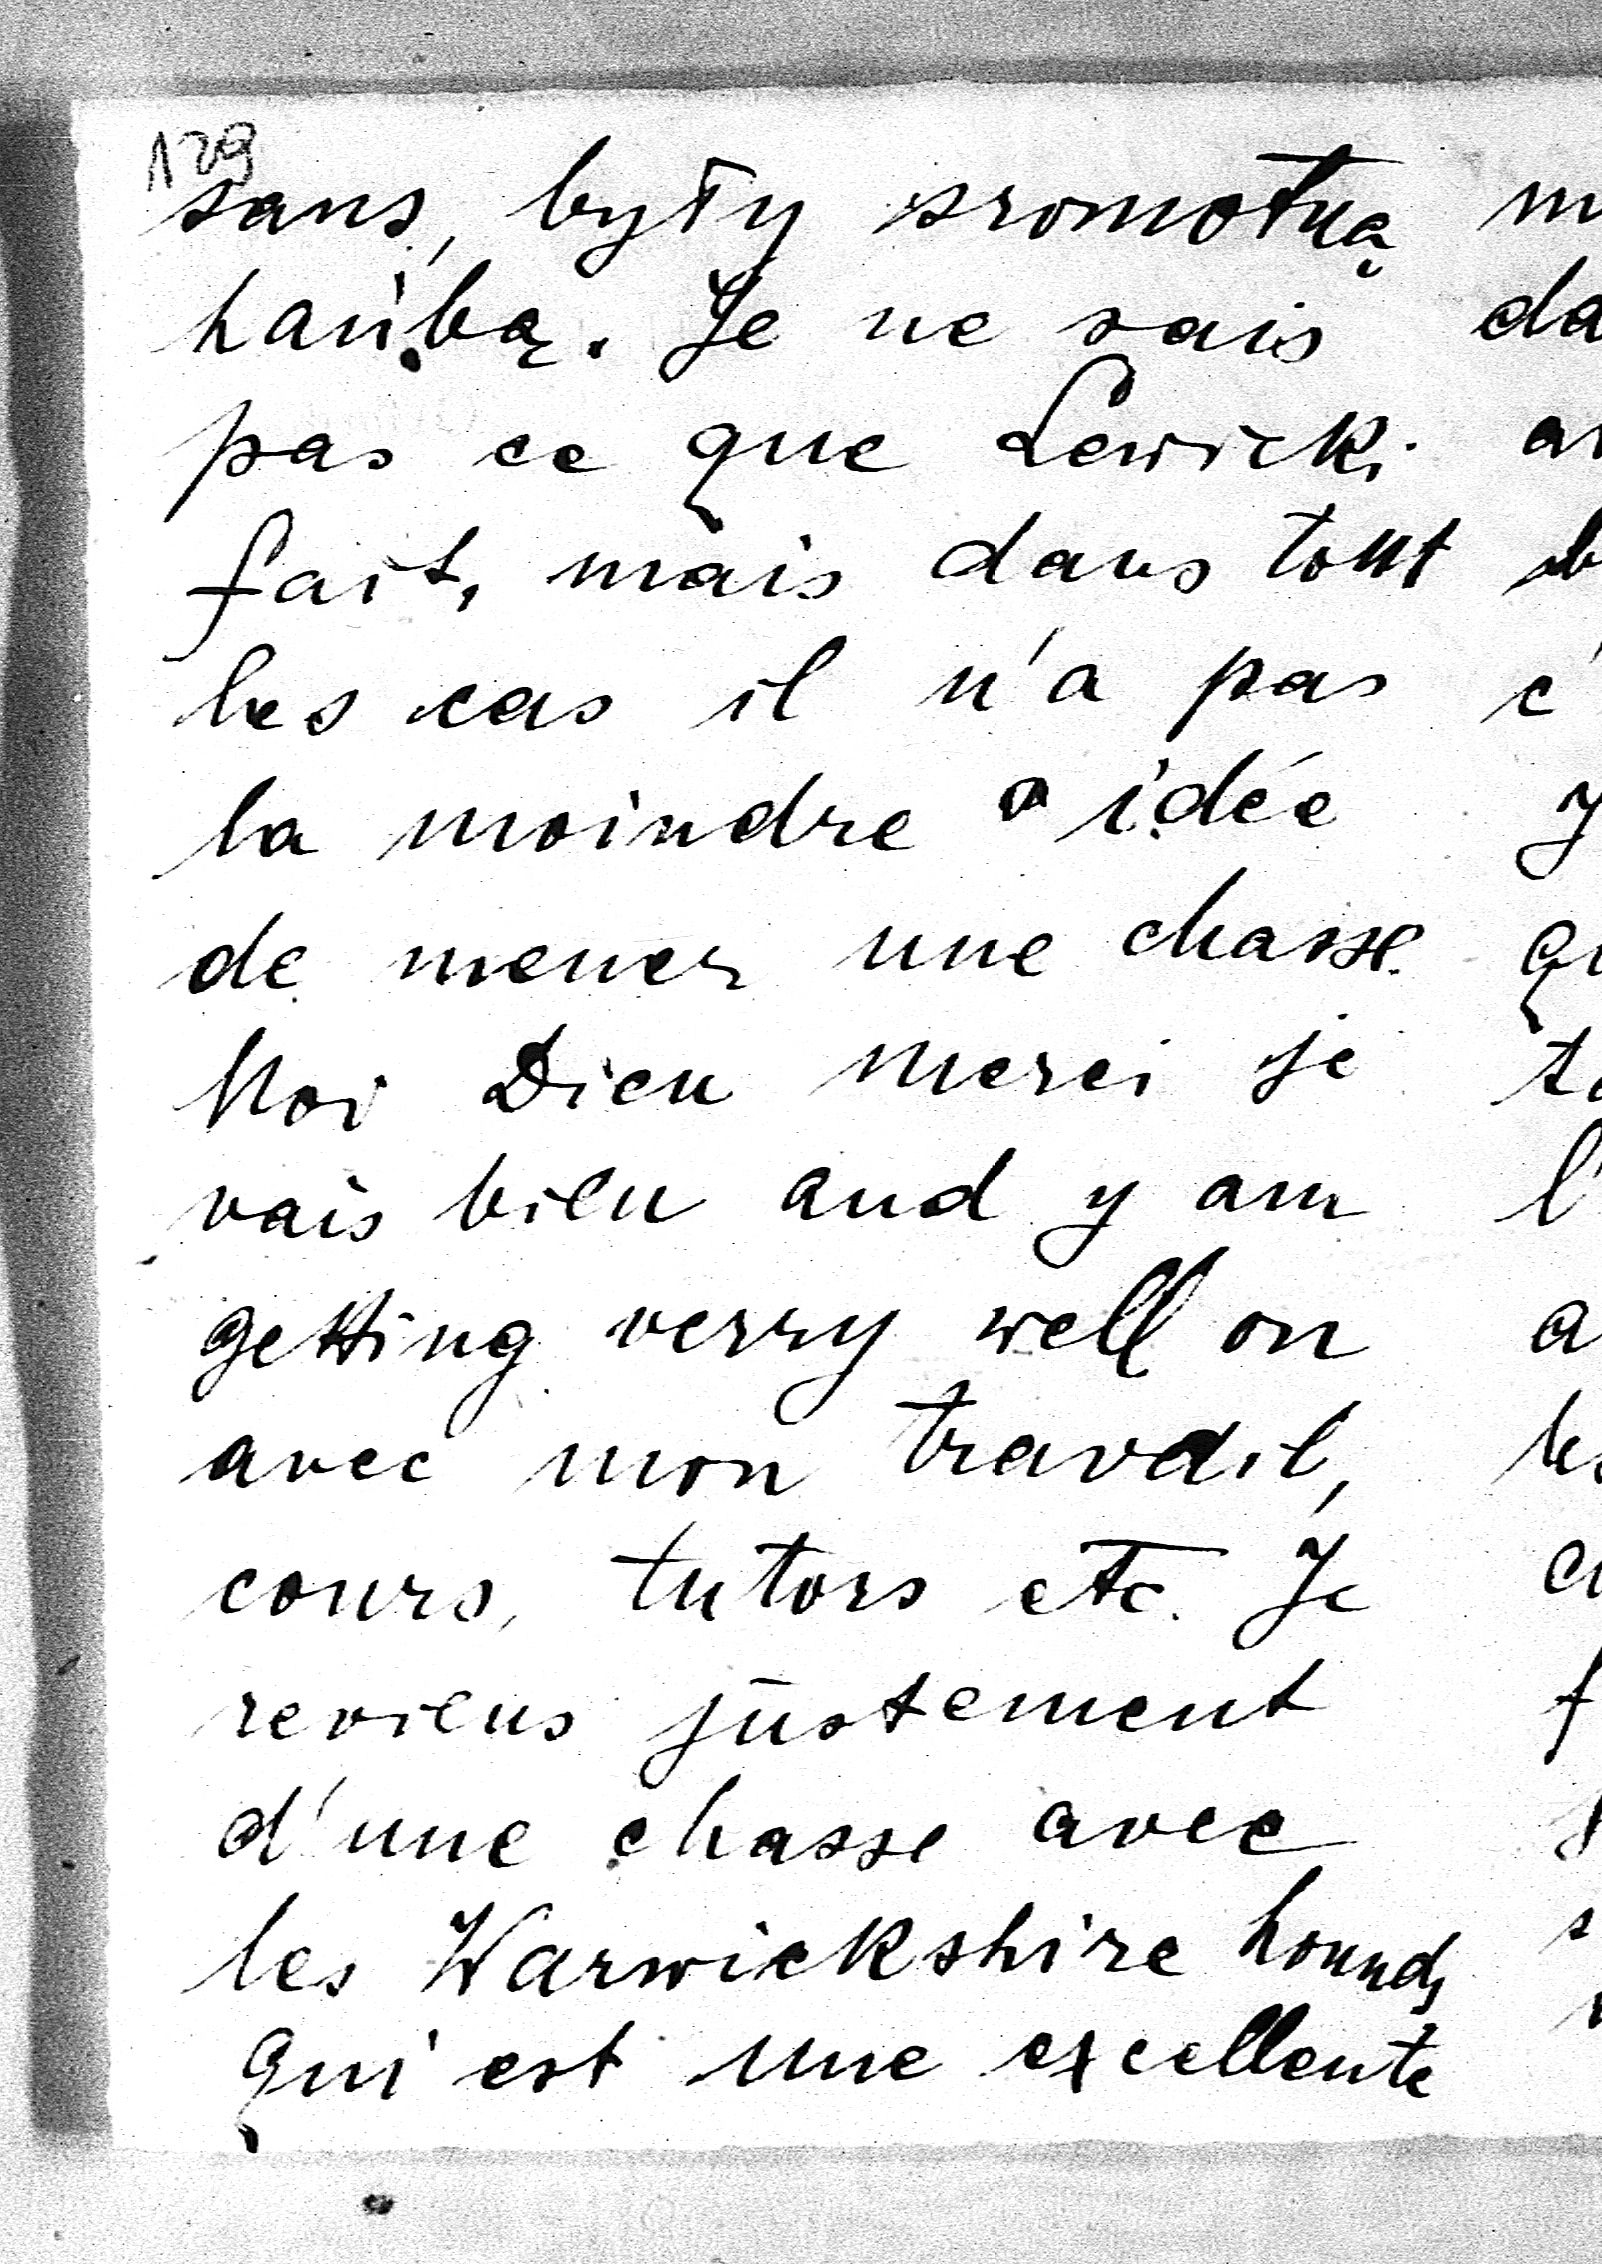 129
sans, były sromotną
hańbą. Je ne sais
pas ce que Lewicki
fait, mais dans tout
les cas il n'a pas
la moindre idée
de mener une chasse.
Moi Dieu merci je
vais bien and y am
getting verry well on
avec mon travail,
cours, tutors etc. Je
reviens justement
d'une chasse avec
les Warwickshire hounds
qui est une excellente